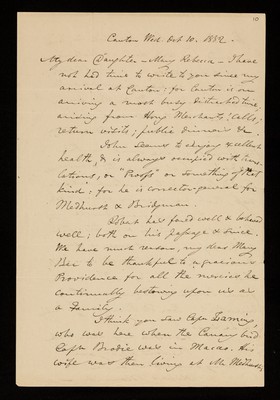 10
Canton Wed. Oct 10. 1832.
My dear Daughter - Mary Rebecca - I have
not had time to write to you since my
arrival at Canton: for Canton is on
arriving a most busy disturbed time,
arising from Hong Merchants' Calls;
return visits; public dinners &c.
John seems to enjoy excellent
health, & is always occupied with trans
lations, or "Proofs" or something of that
kind; for he is corrector-general for
Medhurst & Bridgman.
Robert has fared well & behaved
well; both on his passage & since.
We have much reason, my dear Mary
Bec to be thankful to a gracious
Providence for all the mercies he
continually bestowing upon us as
a Family.
I think you saw Captn
who was here when the Canary bird
Captn Brodie was in Macao. His
wife was then living at Mr Medhurst's,